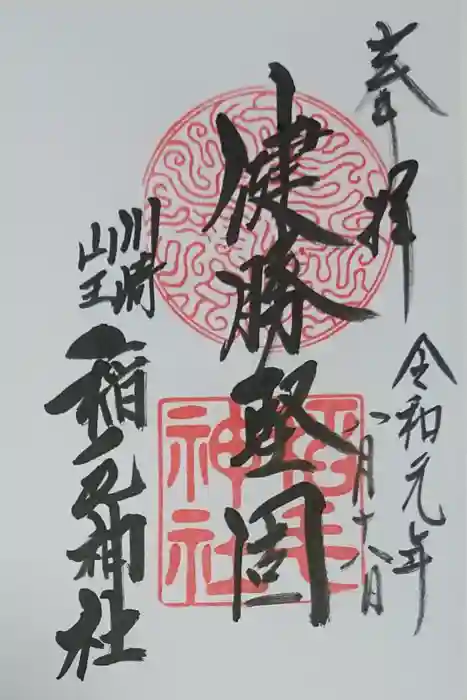 奉拝
令和元年
八月十八日
健勝堅固
川崎
山王
稲毛神社
稲毛
神社